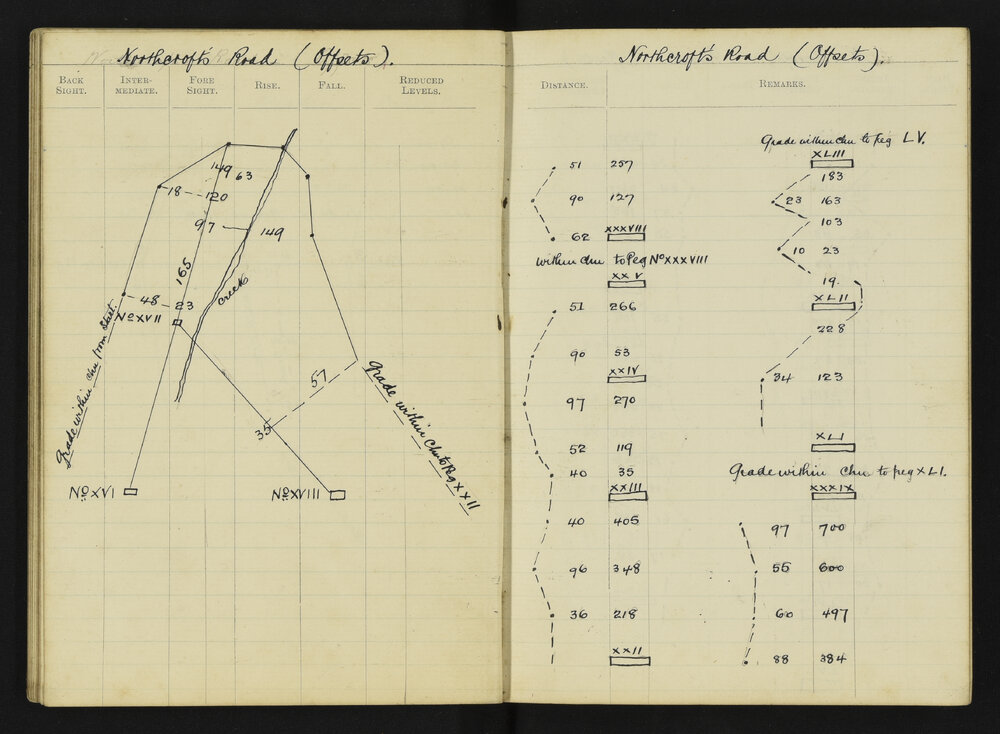 Northcroft's Road (Offsets).
BACK SIGHT.
INTER-MEDIATE.
FORE SIGHT.
RISE.
FALL.
REDUCED LEVELS.
149
63
18
120
97
149
165
creek
48
23
No XVII
Grade within chn from Start.
57
35
Grade within Chn to Peg XXII
No XVI
No XVIII
Northcroft's Road (Offsets).
DISTANCE.
REMARKS.
51 257
90 127
XXXVIII
62
within chn to Peg No XXXVIII
XXV
51 266
90 53
XXIV
97 270
52 119
40 35
XXIII
40 405
96 348
36 218
XXII
Grade within chn to peg LV.
XLIII
183
23 163
103
10 23
19.
XLII
228
34 123
XLI
Grade within Chn to peg XLI.
XXXIX
97 700
55 600
60 497
88 384